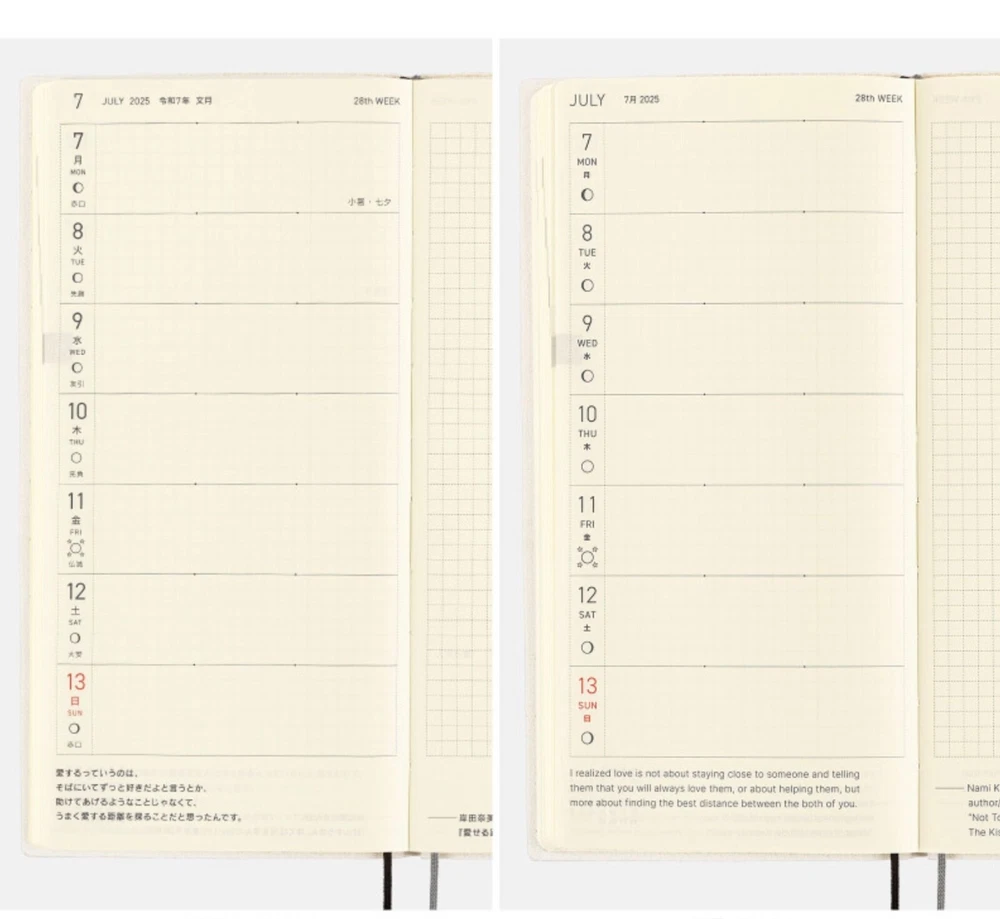 7 JULY 2025 令和7年 文月 28th WEEK
7
月
MON
赤口
小暑・七夕
8
火
TUE
先勝
9
水
WED
友引
10
木
THU
先負
11
金
FRI
仏滅
12
土
SAT
大安
13
日
SUN
赤口
愛するっていうのは、
そばにいてずっと好きだよと言うとか、
助けてあげるようなことじゃなくて、
うまく愛する距離を探ることだと思ったんです。
岸田奈美
『愛せる
JULY 7月 2025 28th WEEK
7
MON
月
8
TUE
火
9
WED
水
10
THU
木
11
FRI
金
12
SAT
土
13
SUN
日
I realized love is not about staying close to someone and telling
them that you will always love them, or about helping them, but
more about finding the best distance between the both of you.
Nami K
author/
"Not To
The Kis